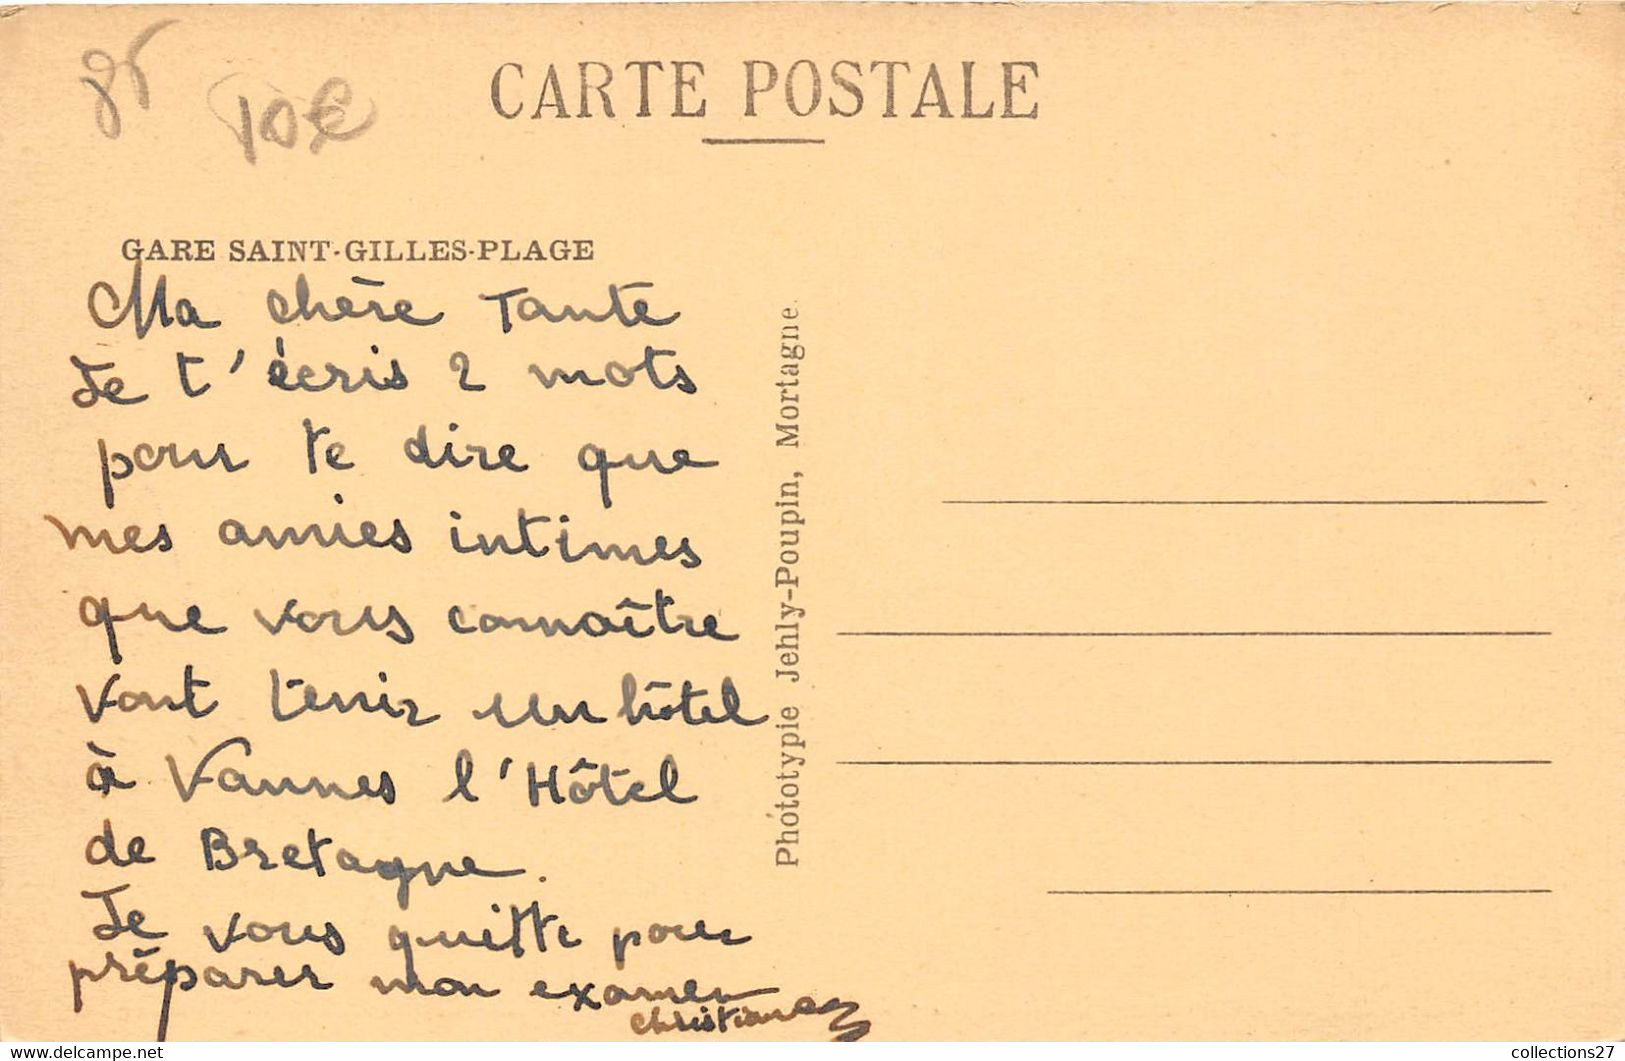 85
10€
CARTE POSTALE
GARE SAINT-GILLES-PLAGE
Ma chère Tante
Je t'écris 2 mots
pour te dire que
mes amies intimes
que vous connaître
vont tenir un hôtel
à Vannes l'Hôtel
de Bretagne.
Je vous quitte pour
préparer mon examen
Christiane
Phototypie Jehly-Poupin, Mortagne
collections27